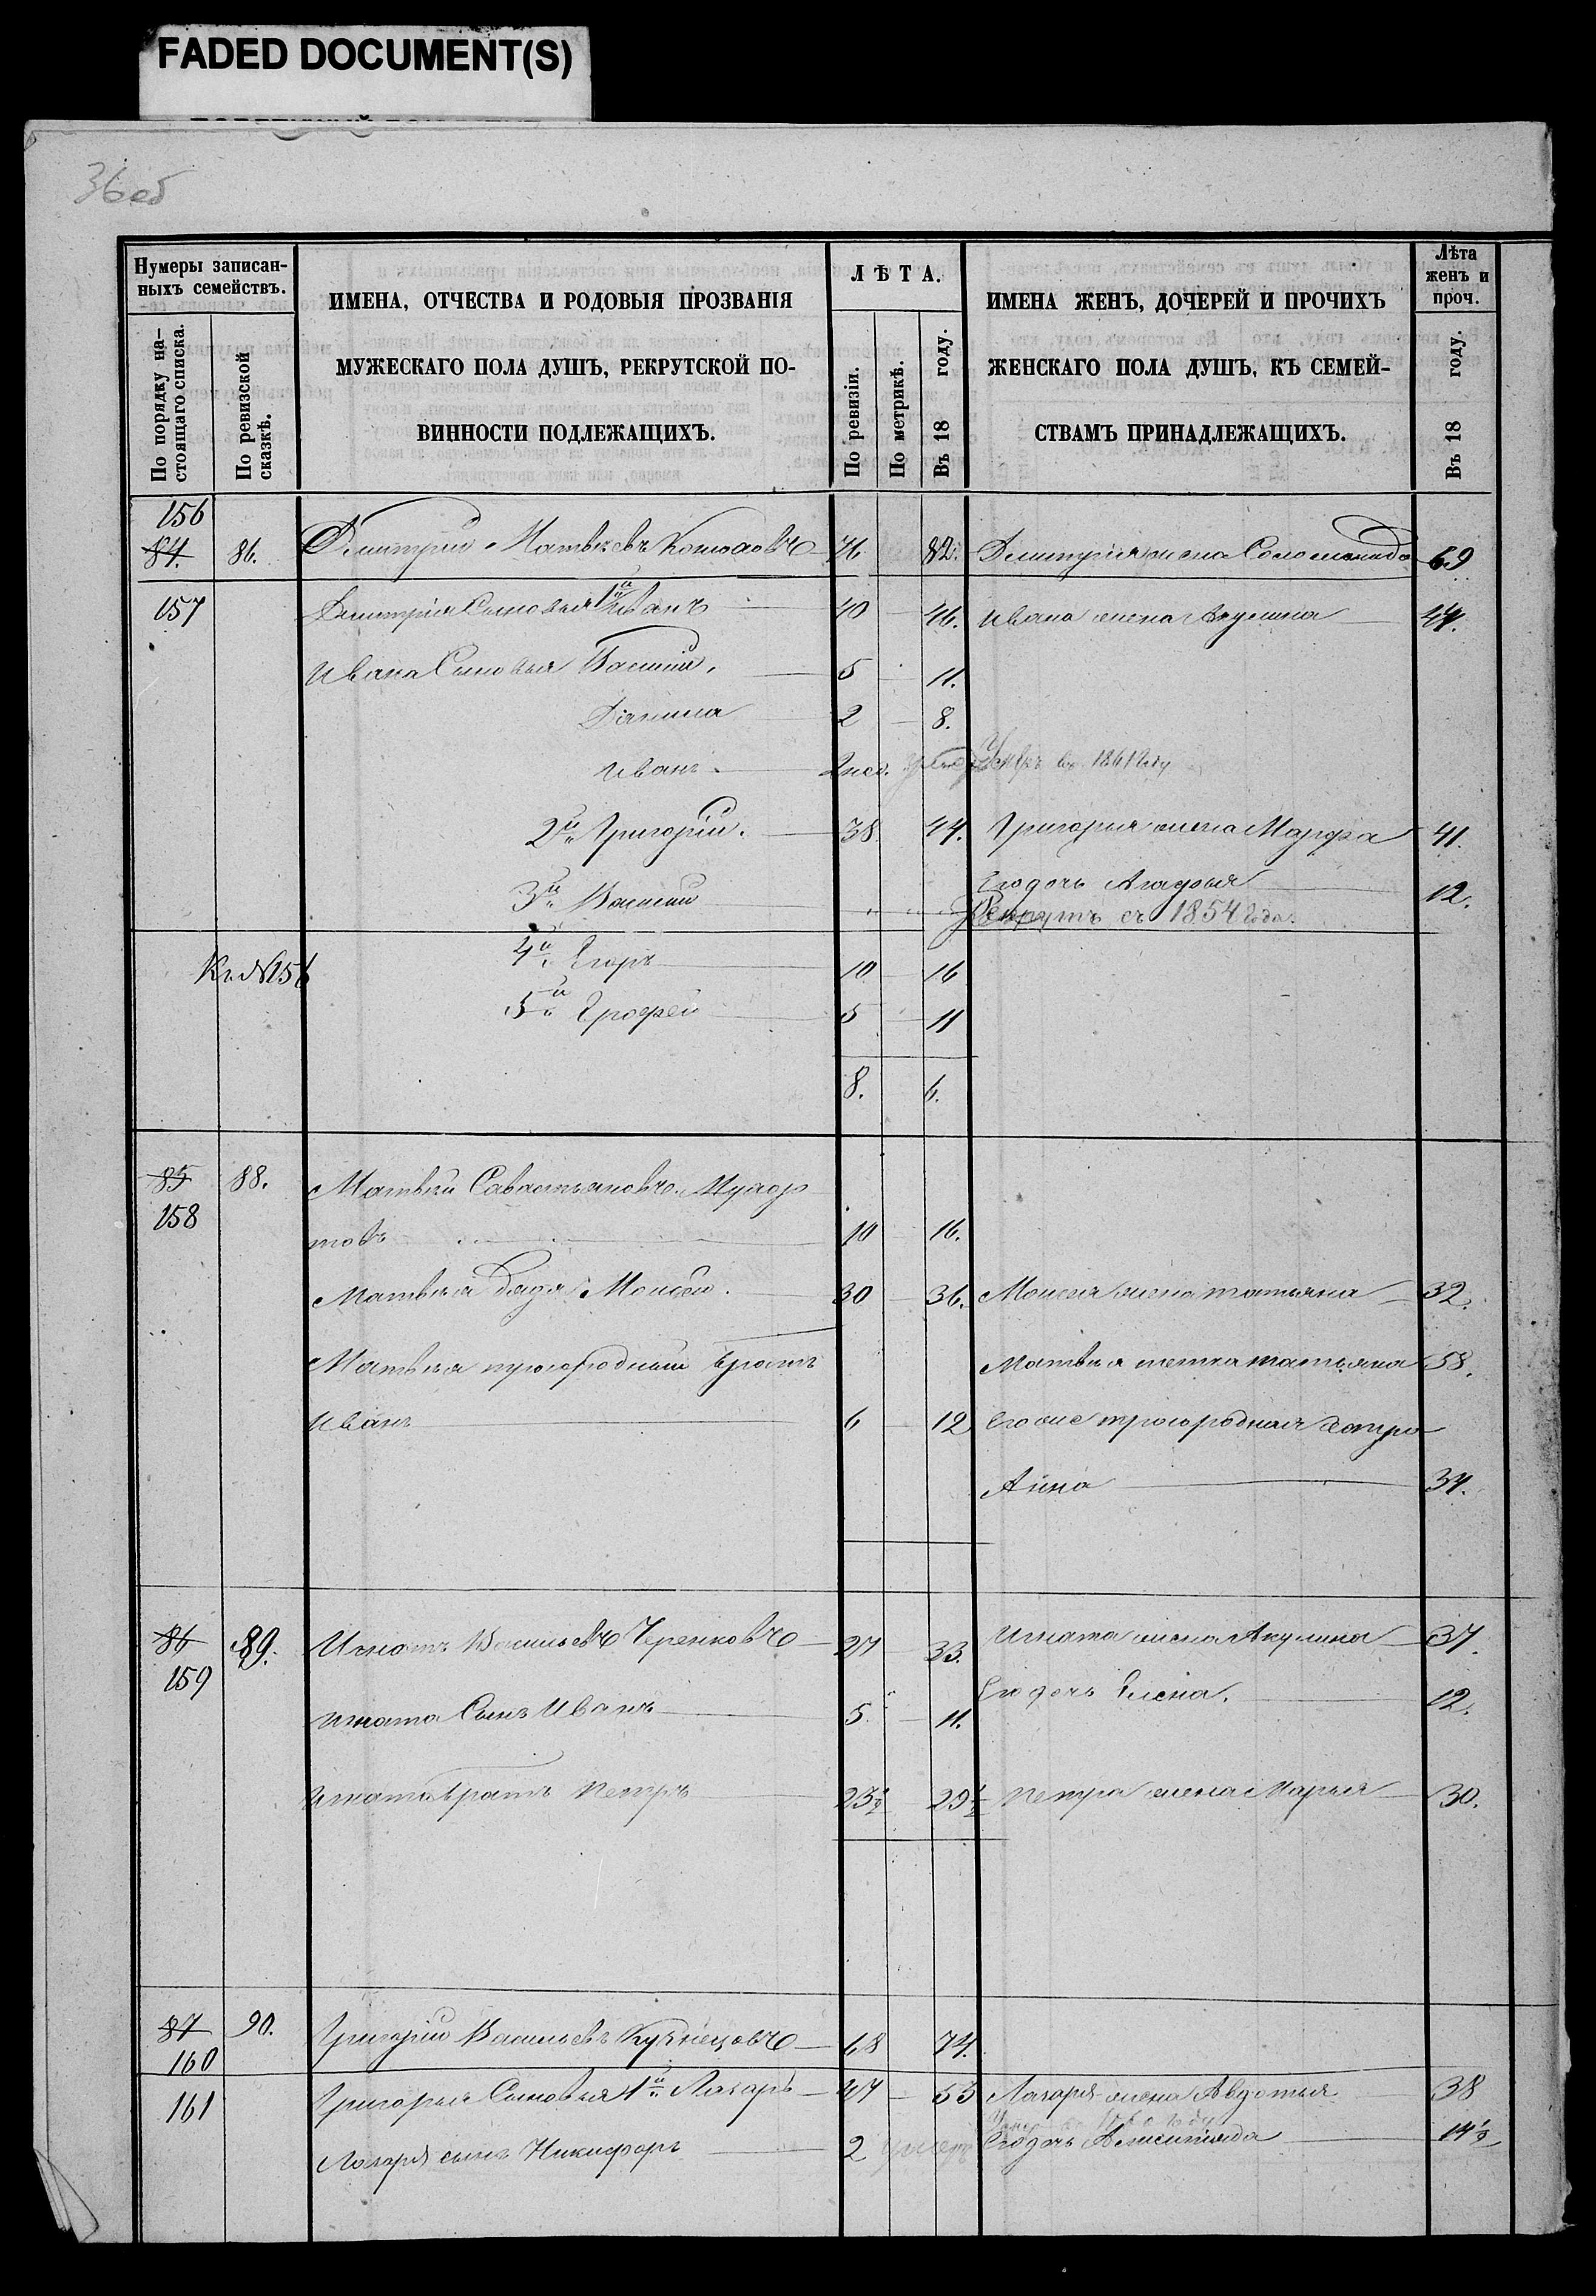 FADED DOCUMENT(S)
36 об
Нумеры записан-
ныхъ семействъ.
По порядку на-
стоящаго списка.
По ревизской
сказкѣ.
ИМЕНА, ОТЧЕСТВА И РОДОВЫЯ ПРОЗВАНІЯ
МУЖЕСКАГО ПОЛА ДУШЪ, РЕКРУТСКОЙ ПО-
ВИННОСТИ ПОДЛЕЖАЩИХЪ.
ЛѢТА.
По ревизіи.
По метрикѣ.
Въ 18 году.
ИМЕНА ЖЕНЪ, ДОЧЕРЕЙ И ПРОЧИХЪ
ЖЕНСКАГО ПОЛА ДУШЪ, КЪ СЕМЕЙ-
СТВАМЪ ПРИНАДЛЕЖАЩИХЪ.
Лѣта
женъ и
проч.
Въ 18 году.
156
84. 86. Дмитрий Матвѣевъ 76 82. Дмитрия жена Соломонида 69
157 Дмитрія Сыновья 1й Иванъ 40 46. Ивана жена Акулина 44.
Ивана Сыновья Василій, 5 11.
Данила 2 8.
Иванъ 2 нед. Умеръ въ 1861 Году
2й Григорій. 38 44. Григорья жена Марфа 41.
Его дочь Агафья 12.
3й Василий Рекрутъ съ 1854 Года.
Къ №156 4й Егоръ 10 16
5й Ерофей 5 11
8. 6.
85 88. Матвѣй Савастьяновъ
158 товъ 10 16.
Матвѣя дядя Моисей. 30 36. Моисея жена татьяна 32.
Матвѣя троюродный братъ Матвѣя тетка татьяна 58.
Иванъ 6 12 Его же троюродная сестра
Анна 34.
86 89. Игнатъ Васильевъ Черенковъ 27 33. Игната жена Акулина 37.
159 Его дочь Елена. 12.
Игната Сынъ Иванъ 5 11.
Игната братъ Петръ 23½ 29½ Петра жена Марья 30.
87 90. Григорій Васильевъ Кузнецовъ 68 74.
160
161 Григорья Сыновья 1й Лазарь 47 53 Лазаря жена Авдотья 38
Лазаря сынъ Никифоръ 2 умеръ Его дочь 14½